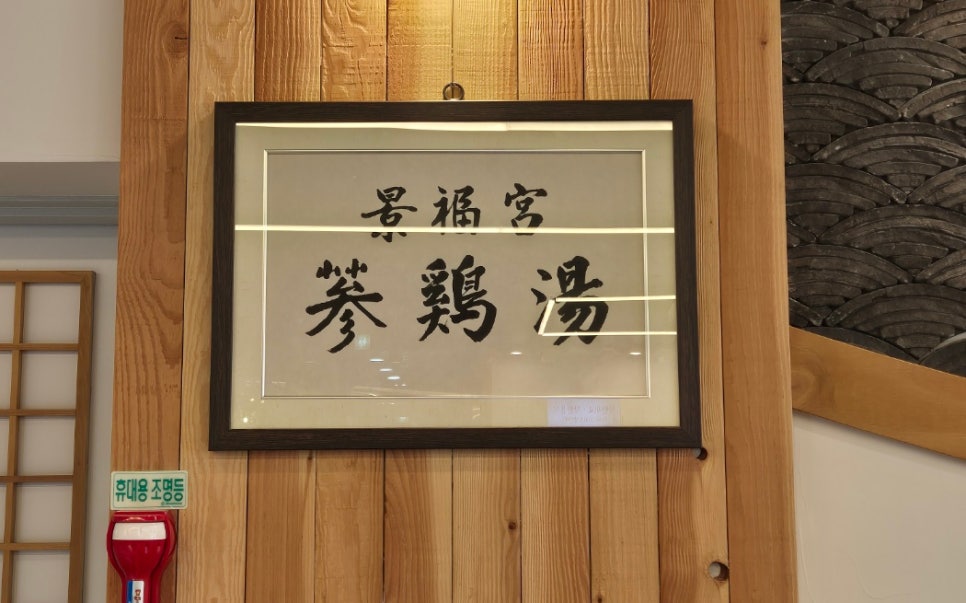 景福宮
蔘鷄湯
휴대용 조명등